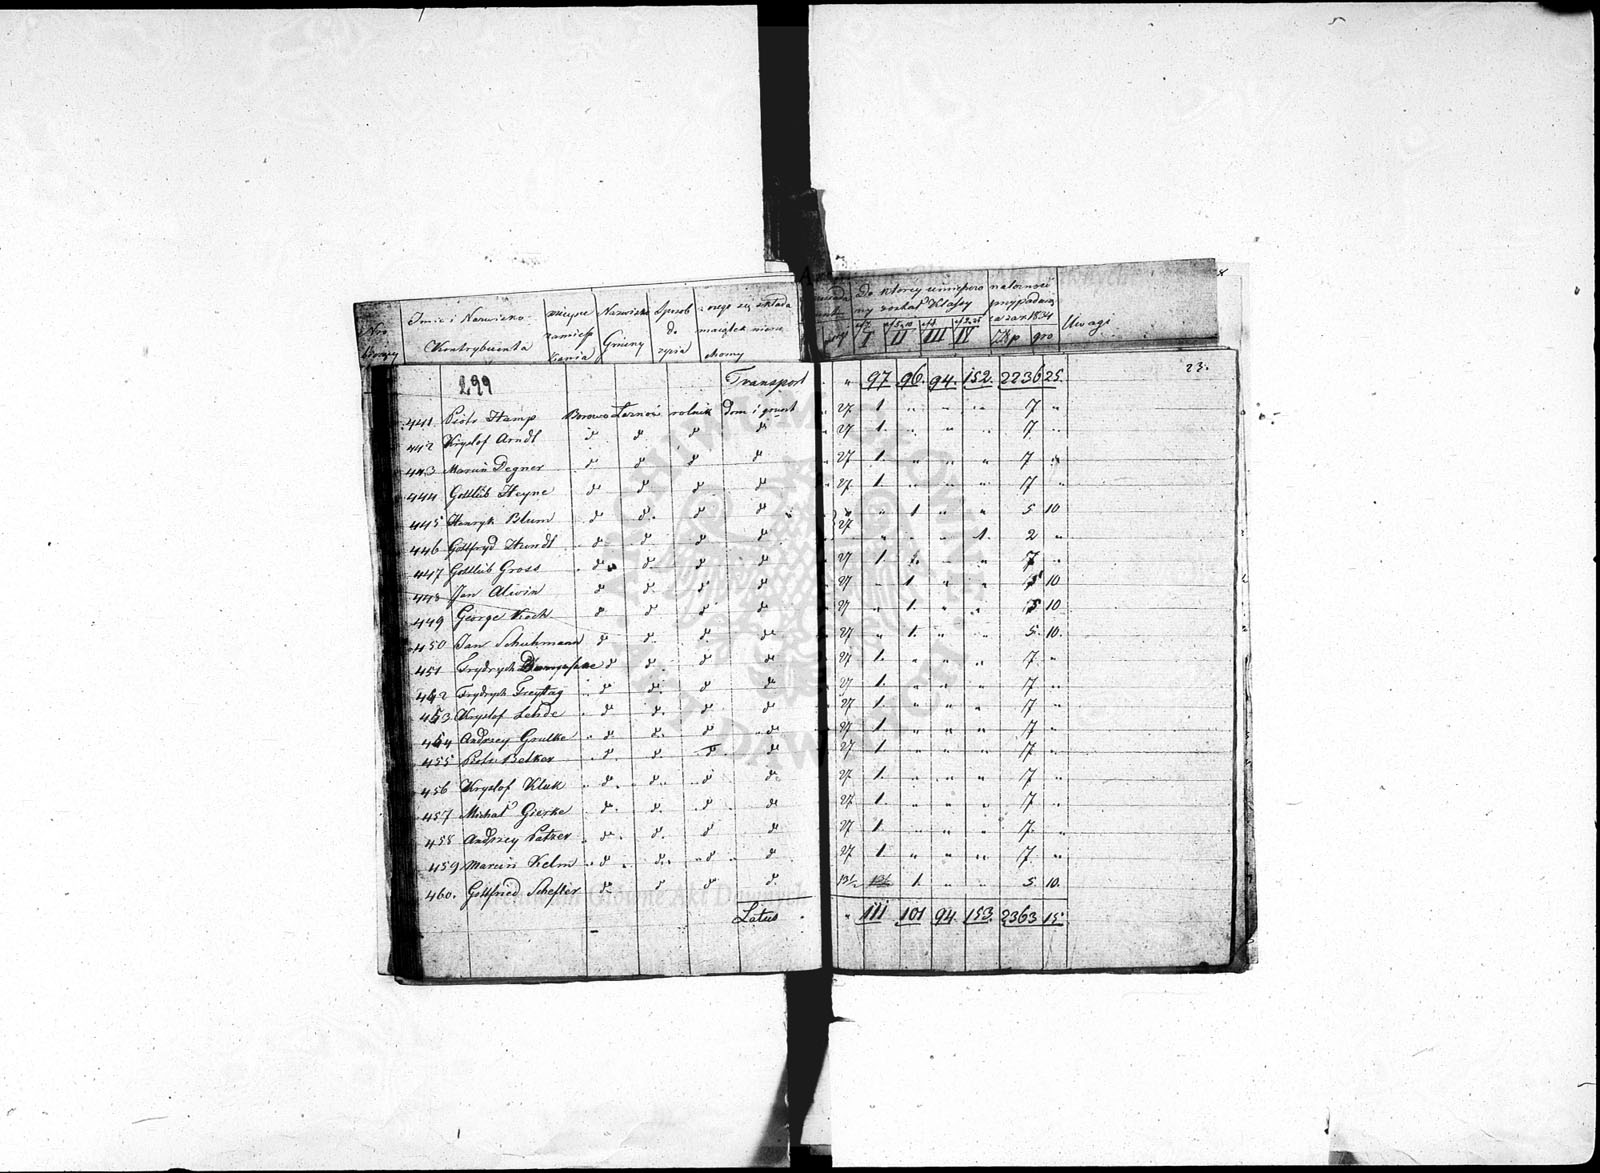 Nro Imie i Nazwisko Kontrybuenta Nazwisko Gminy Sposób do życia Do ktorey należności przypada za rok 1834 Uwagi
I II III IV Złp gro
23.
299 Transport „ 97 96. 94. 152. 2236 25.
441. Piotr Hamp Borowo Łaznów rolnik Dom i grunt 27 1. „ „ „ 7 „
442 Krystof Arndt d d d d 27 1. „ „ „ 7 „
443 Marcin Degner d d d d 27 1. „ „ „ 7 „
444 Gottlib Heyne d d d d 27. 1. „ „ „ 7 „
445 Henryk Blum d d d d 27 „ 1. „ „ 5 10
446 Gottfryd Hundt d d d d „ „ „ 1. 2 „
447 Gottlib Gross d d d d 27 1. „ „ „ 7 „
448 Jan Aliwin d d d d 27 „ 1. „ „ 5 10
449 George Koch d d d d 27 „ 1. „ „ 5 10
450 Jan Schuhmann d d d d 27 „ 1. „ „ 5. 10.
451 Frydrych d d d d 27 1. „ „ „ 7 „
452 Frydrych Freytag d d d d 27 1. „ „ „ 7 „
453 Krystof Lehde d d d d 27 1. „ „ „ 7 „
454 Andrzey Grulke d d d d 27 1. „ „ „ 7 „
455 Piotr Betker d d d d 27 1. „ „ „ 7 „
456 Krystof Kluk d d d d 27 1. „ „ „ 7 „
457 Michał Gierke d d d d 27 1. „ „ „ 7 „
458 Andrzey Patzer d d d d 27 1. „ „ „ 7. „
459 Marcin Kelm d d d d 27 1. „ „ „ 7 „
460. Gottfried Schefler d d d d 13½ „ 1. „ „ 5. 10.
Latus „ 111 101 94. 153. 2363 15
Archiwum Główne Akt Dawnych